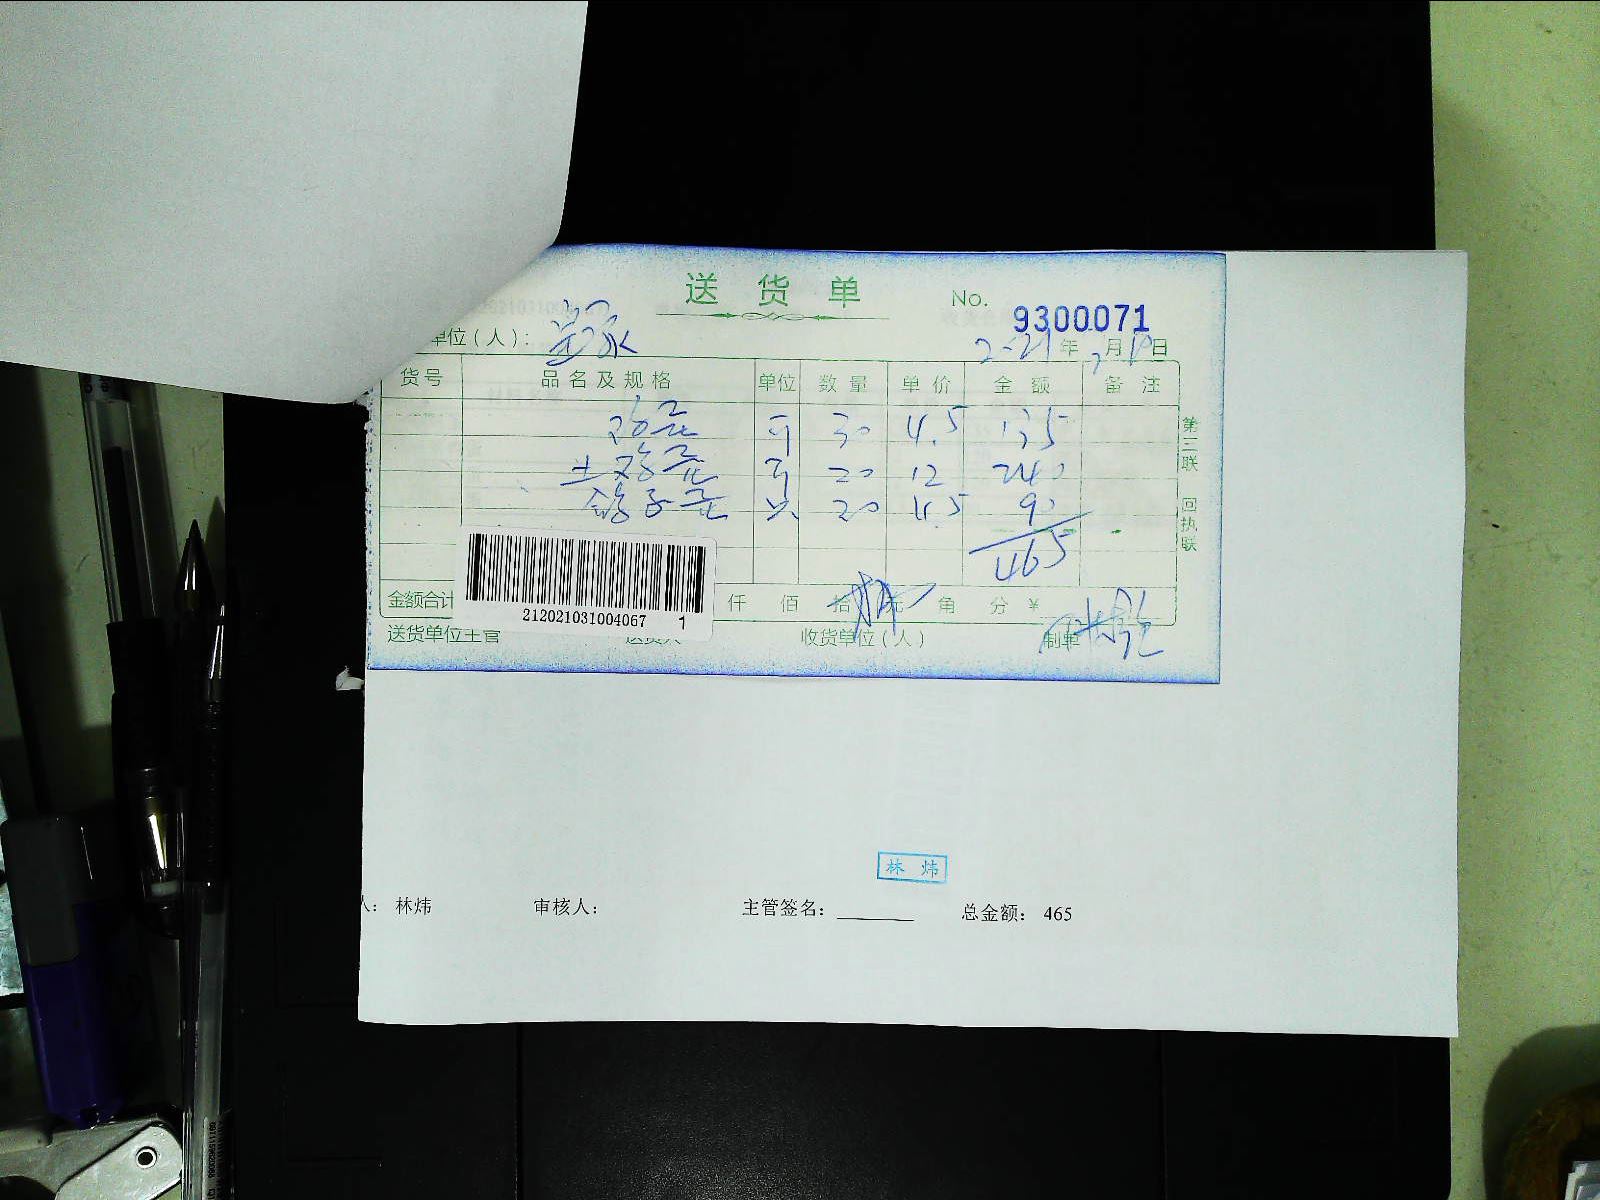 送货单 No. 9300071
单位(人):
年 月 日
货号 品名及规格 单位 数量 单价 金额 备注
30 4.5 135
土鸡蛋 20 12 240
鸽子蛋 20 4.5 90
465
第三联 回执联
金额合计 仟 佰 拾 元 角 分 ¥
212021031004067 1
送货单位主管 送货人 收货单位(人) 制单
林炜
人: 林炜 审核人: 主管签名: 总金额: 465